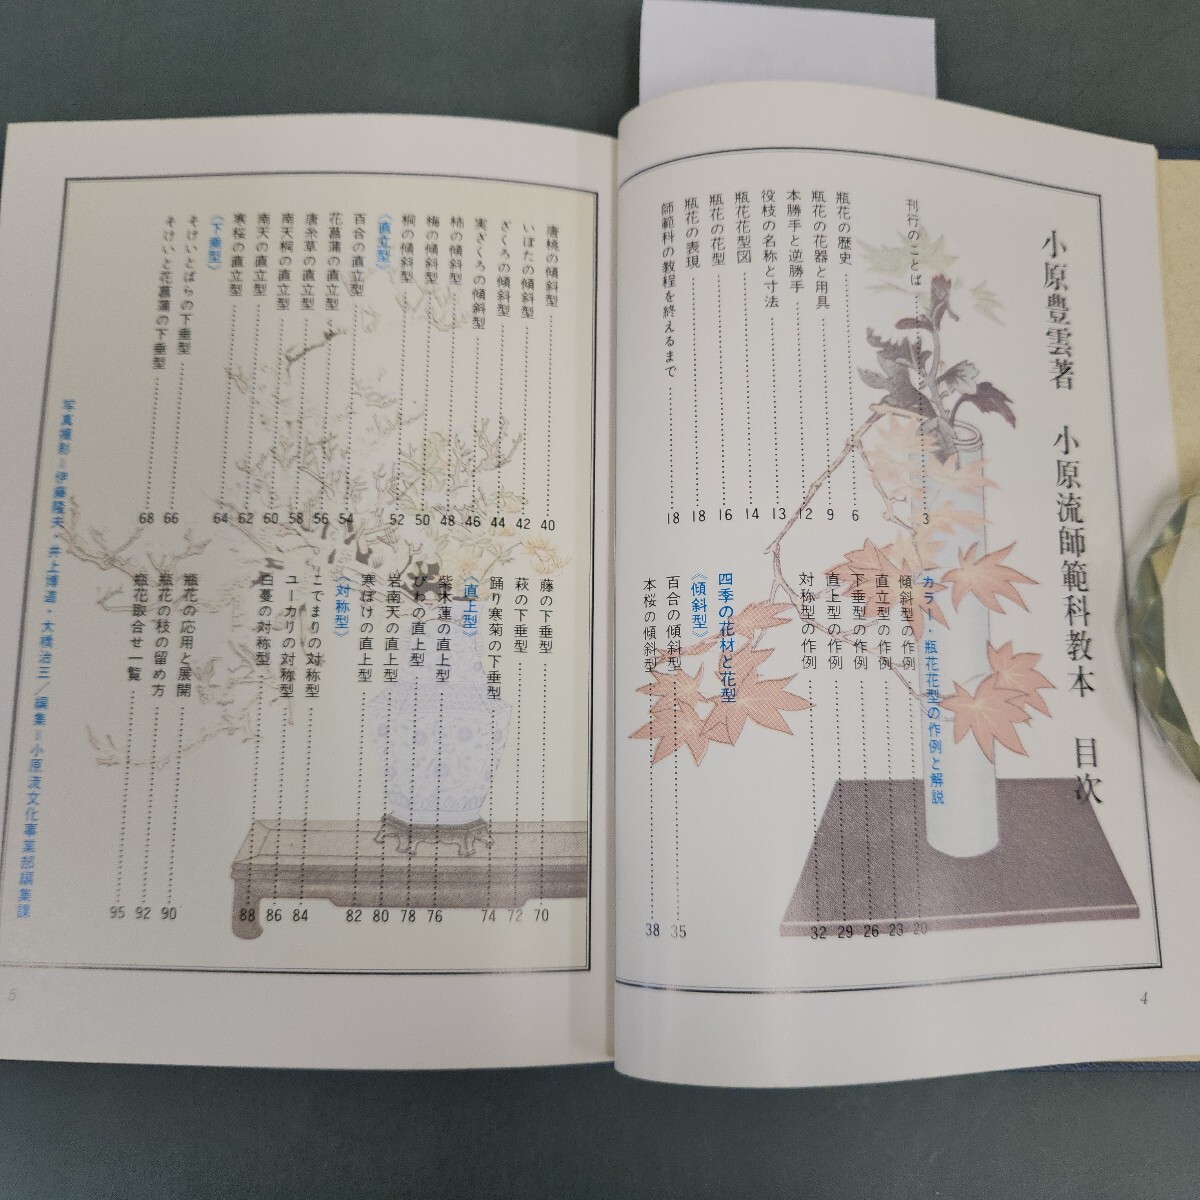 小原豊雲著　小原流師範科教本　目次
刊行のことば 3
瓶花の歴史 6
瓶花の花器と用具 9
本勝手と逆勝手 12
役枝の名称と寸法 13
瓶花花型図 14
瓶花の花型 16
瓶花の表現 18
師範科の教程を終えるまで 18
カラー・瓶花花型の作例と解説
傾斜型の作例 20
直立型の作例 23
下垂型の作例 26
直上型の作例 29
対称型の作例 32
四季の花材と花型
〈傾斜型〉
百合の傾斜型 35
本桜の傾斜型 38
4
唐桃の傾斜型 40
いぼたの傾斜型 42
ざくろの傾斜型 44
実ざくろの傾斜型 46
柿の傾斜型 48
梅の傾斜型 50
桐の傾斜型 52
〈直立型〉
百合の直立型 54
花菖蒲の直立型 56
唐糸草の直立型 58
南天桐の直立型 60
南天の直立型 62
寒桜の直立型 64
〈下垂型〉
そけいとばらの下垂型 66
そけいと花菖蒲の下垂型 68
藤の下垂型 70
萩の下垂型 72
踊り寒菊の下垂型 74
〈直上型〉
紫木蓮の直上型 76
びわの直上型 78
岩南天の直上型 80
寒ぼけの直上型 82
〈対称型〉
こでまりの対称型 84
ユーカリの対称型 86
白蔓の対称型 88
瓶花の応用と展開 90
瓶花の枝の留め方 92
瓶花取合せ一覧 95
写真撮影＝伊藤隆夫・井上博道・大橋治三／編集＝小原流文化事業部編集課
5